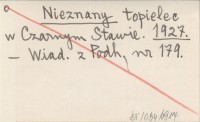 Nieznany topielec
w Czarnym Stawie. 1927.
– Wiad. z Podh., nr 179.